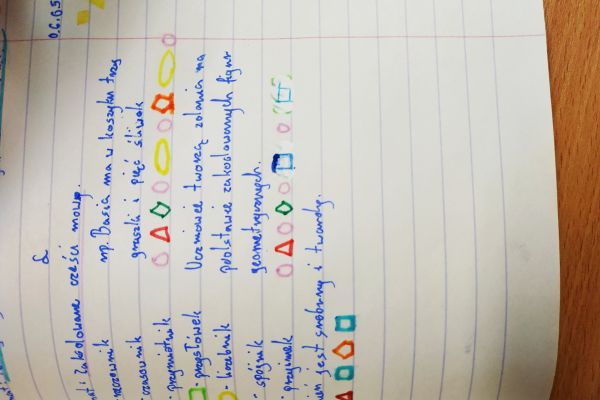 0.6.65
zakodowane części mowy.
np. Basia ma w koszyku trzy
gruszki i pięć śliwek
rzeczownik
czasownik
przymiotnik
Uczniowie tworzą zdania na
· przysłówek
podstawie zakodowanych figur
· liczebnik
geometrycznych.
· spójnik
· przyimek
jest srebrny i twardy.